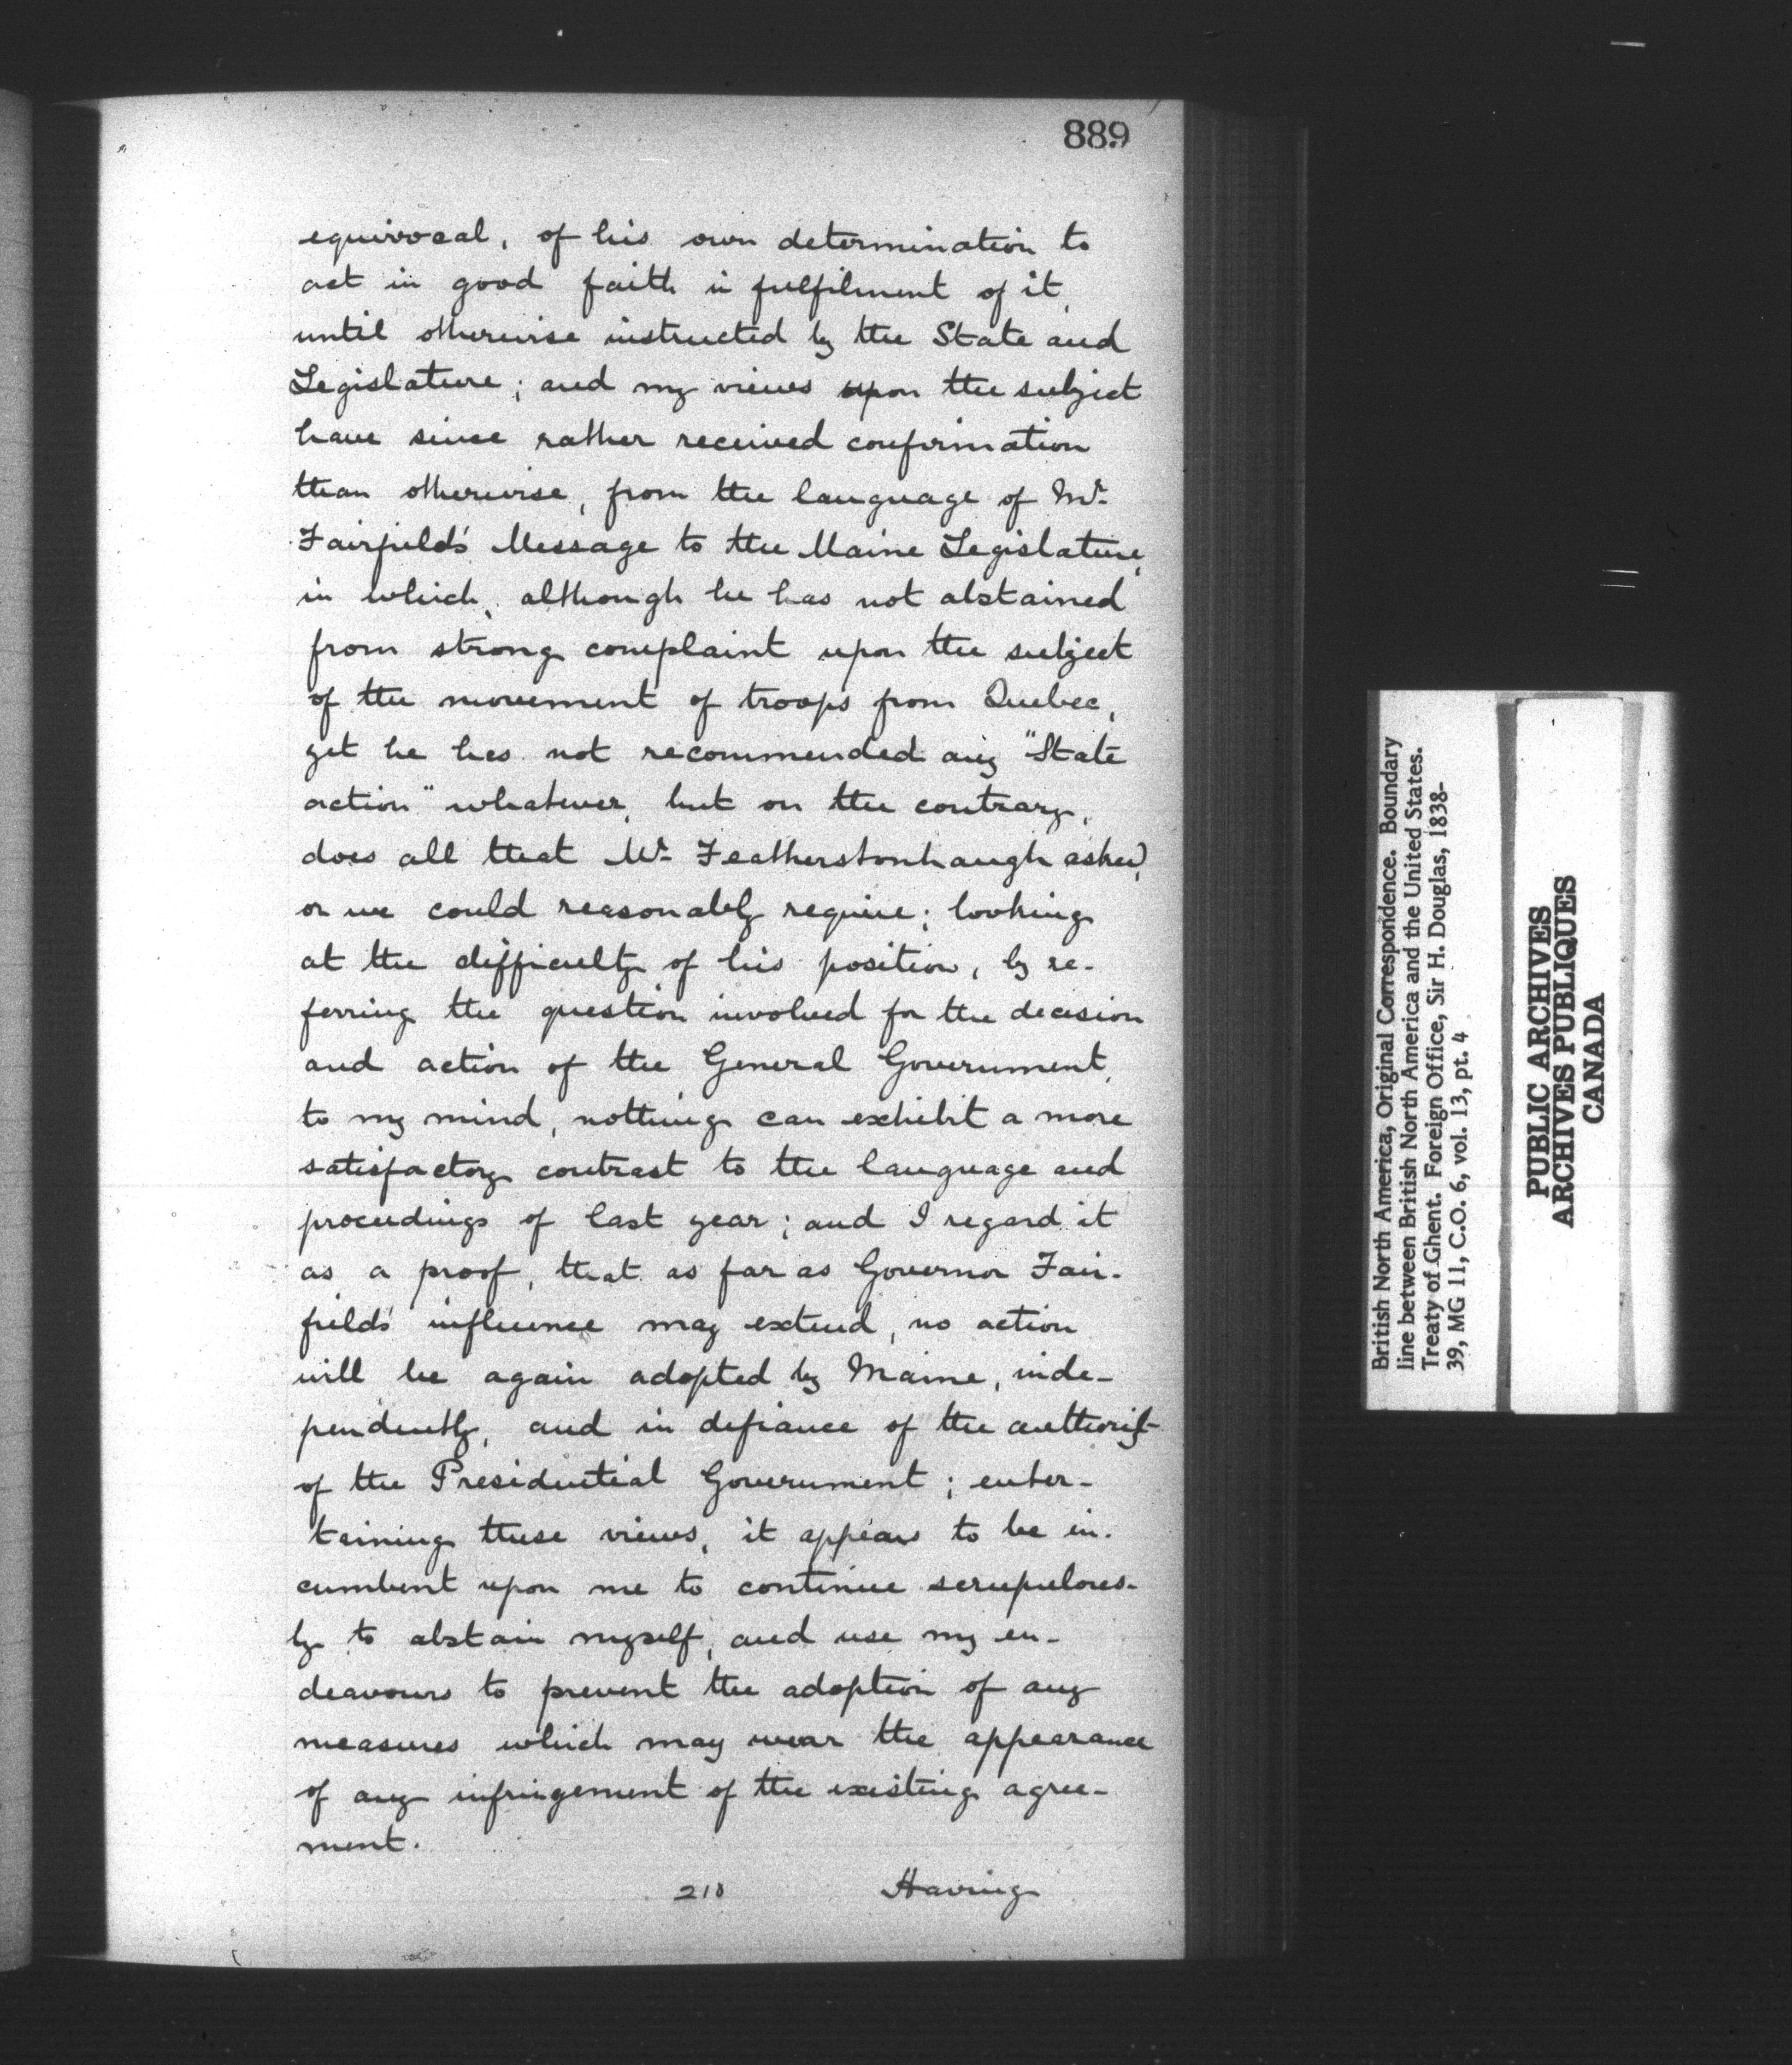 889
equivocal, of his own determination to
act in good faith in fulfilment of it,
until otherwise instructed by the State and
Legislature; and my views upon the subject
have since rather received confirmation
than otherwise, from the language of Mr.
Fairfield's Message to the Maine Legislature,
in which, although he has not abstained
from strong complaint upon the subject
of the movement of troops from Quebec,
yet he has not recommended any "State
action" whatever, but on the contrary,
does all that Mr. Featherstonhaugh asked,
or we could reasonably require; looking
at the difficulty of his position, by re-
ferring the question involved for the decision
and action of the General Government,
to my mind, nothing can exhibit a more
satisfactory contrast to the language and
proceedings of last year; and I regard it
as a proof, that as far as Governor Fair-
field's influence may extend, no action
will be again adopted by Maine, inde-
pendently, and in defiance of the authority
of the Presidential Government; enter-
taining these views, it appears to be in-
cumbent upon me to continue scrupulous-
ly to abstain myself, and use my en-
deavours to prevent the adoption of any
measures which may wear the appearance
of any infringement of the existing agree-
ment.
218 Having
British North America, Original Correspondence. Boundary
line between British North America and the United States.
Treaty of Ghent. Foreign Office, Sir H. Douglas, 1838-
39, MG 11, C.O. 6, vol. 13, pt. 4
PUBLIC ARCHIVES
ARCHIVES PUBLIQUES
CANADA